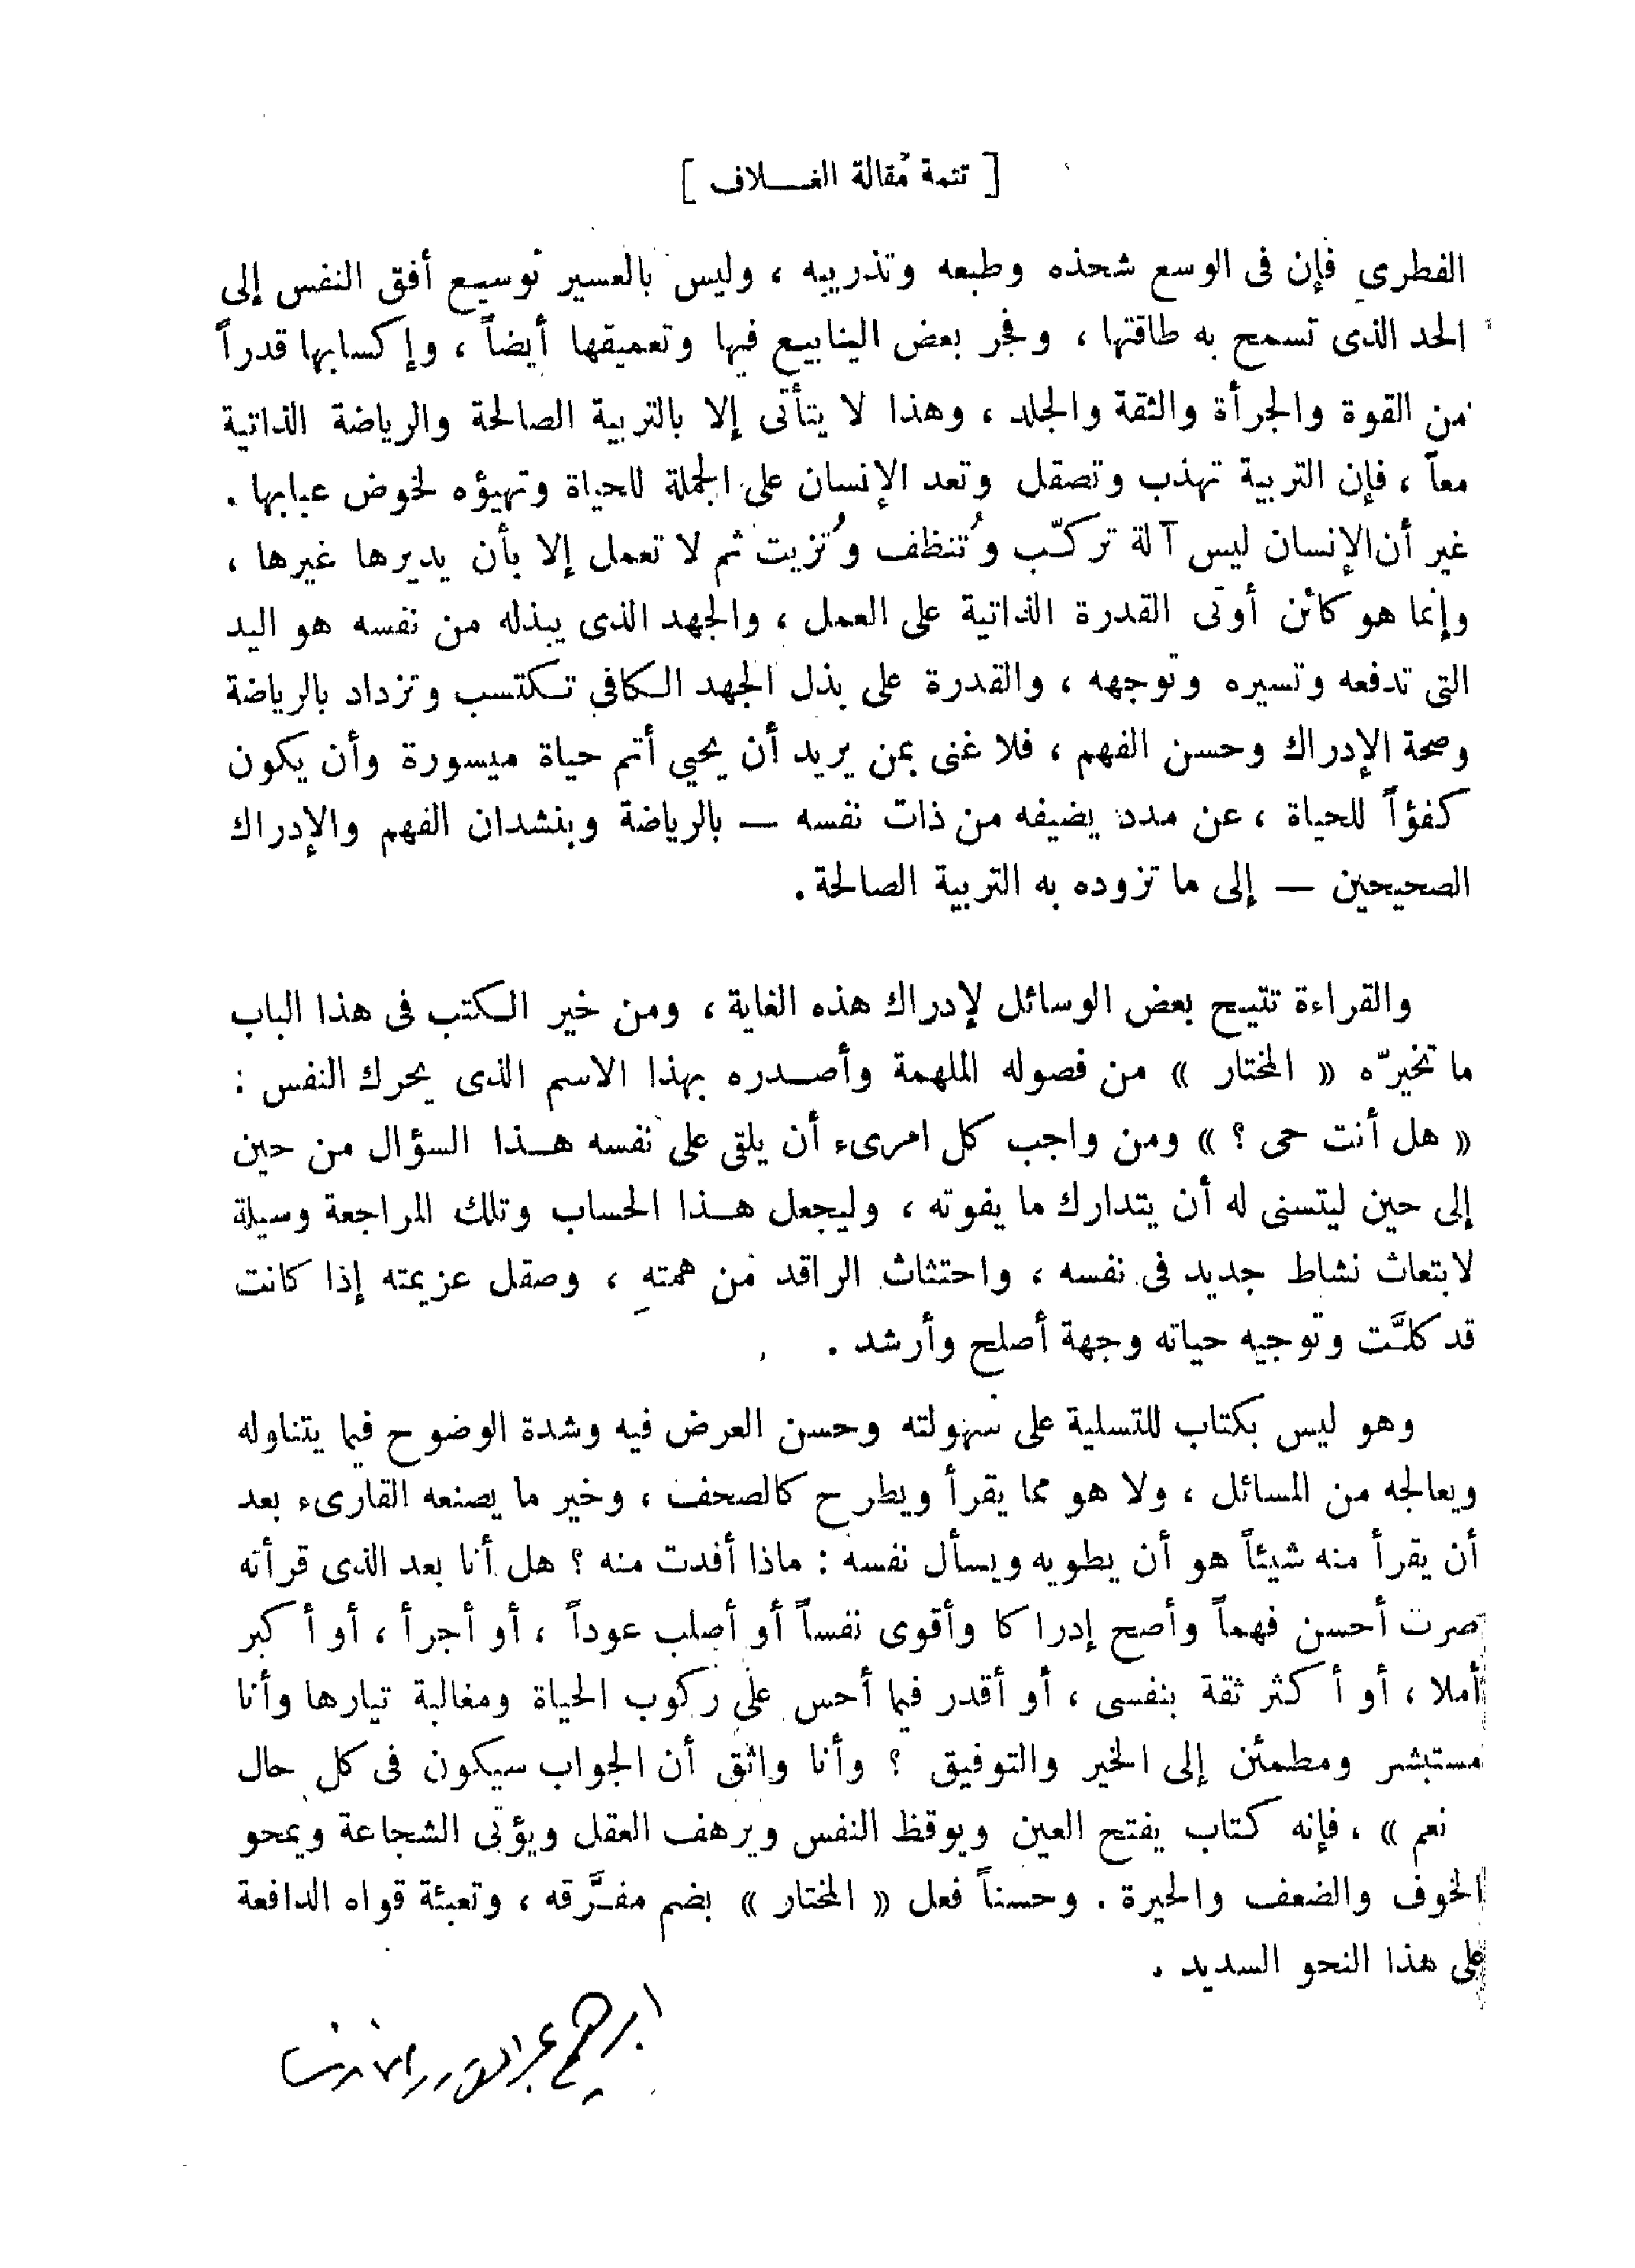 [ تتمة مقالة الغـــلاف ]
الفطري فإن فى الوسع شحذه وطبعه وتذريبه ، وليس بالعسير توسيع أفق النفس إلى
الحد الذى تسمح به طاقتها ، وفجر بعض الينابيع فيها وتعميقها أيضاً ، وإكسابها قدراً
من القوة والجرأة والثقة والجلد ، وهذا لا يتأتى إلا بالتربية الصالحة والرياضة الذاتية
معاً ، فإن التربية تهذب وتصقل وتعد الإنسان على الجملة للحياة وتهيؤه لخوض عبابها .
غير أن الإنسان ليس آلة تركّب وُتنظف وُتزيت ثم لا تعمل إلا بأن يديرها غيرها ،
وإنما هو كائن أوتى القدرة الذاتية على العمل ، والجهد الذى يبذله من نفسه هو اليد
التى تدفعه وتسيره وتوجهه ، والقدرة على بذل الجهد الكافي تكتسب وتزداد بالرياضة
وصحة الإدراك وحسن الفهم ، فلا غنى بمن يريد أن يحيي أتم حياة ميسورة وأن يكون
كفؤاً للحياة ، عن مدد يضيفه من ذات نفسه — بالرياضة وبنشدان الفهم والإدراك
الصحيحين — إلى ما تزوده به التربية الصالحة .
والقراءة تتيح بعض الوسائل لإدراك هذه الغاية ، ومن خير الكتب فى هذا الباب
ما تخيرّه « المختار » من فصوله الملهمة وأصـدره بهذا الاسم الذى يحرك النفس :
« هل أنت حى ؟ » ومن واجب كل امرىء أن يلقى على نفسه هـذا السؤال من حين
إلى حين ليتسنى له أن يتدارك ما يفوته ، وليجعل هـذا الحساب وتلك المراجعة وسيلة
لابتعاث نشاط جديد فى نفسه ، واحتثاث الراقد من همته ، وصقل عزيمته إذا كانت
قد كلَّت وتوجيه حياته وجهة أصلح وأرشد .
وهو ليس بكتاب للتسلية على سهولته وحسن العرض فيه وشدة الوضوح فيما يتناوله
ويعالجه من المسائل ، ولا هو مما يقرأ ويطرح كالصحف ، وخير ما يصنعه القارىء بعد
أن يقرأ منه شيئاً هو أن يطويه ويسأل نفسه : ماذا أفدت منه ؟ هل أنا بعد الذى قرأته
صرت أحسن فهماً وأصح إدراكا وأقوى نفساً أو أصلب عوداً ، أو أجرأ ، أو أكبر
أملا ، أو أكثر ثقة بنفسى ، أو أقدر فيما أحس على ركوب الحياة ومغالبة تيارها وأنا
مستبشر ومطمئن إلى الخير والتوفيق ؟ وأنا واثق أن الجواب سيكون فى كل حال
نعم » ، فإنه كتاب يفتح العين ويوقظ النفس ويرهف العقل ويؤتى الشجاعة ويمحو
الخوف والضعف والحيرة . وحسناً فعل « المختار » بضم مفـَّرقه ، وتعبئة قواه الدافعة
على هذا النحو السديد .
ابراهيم عبدالقادر المازنى